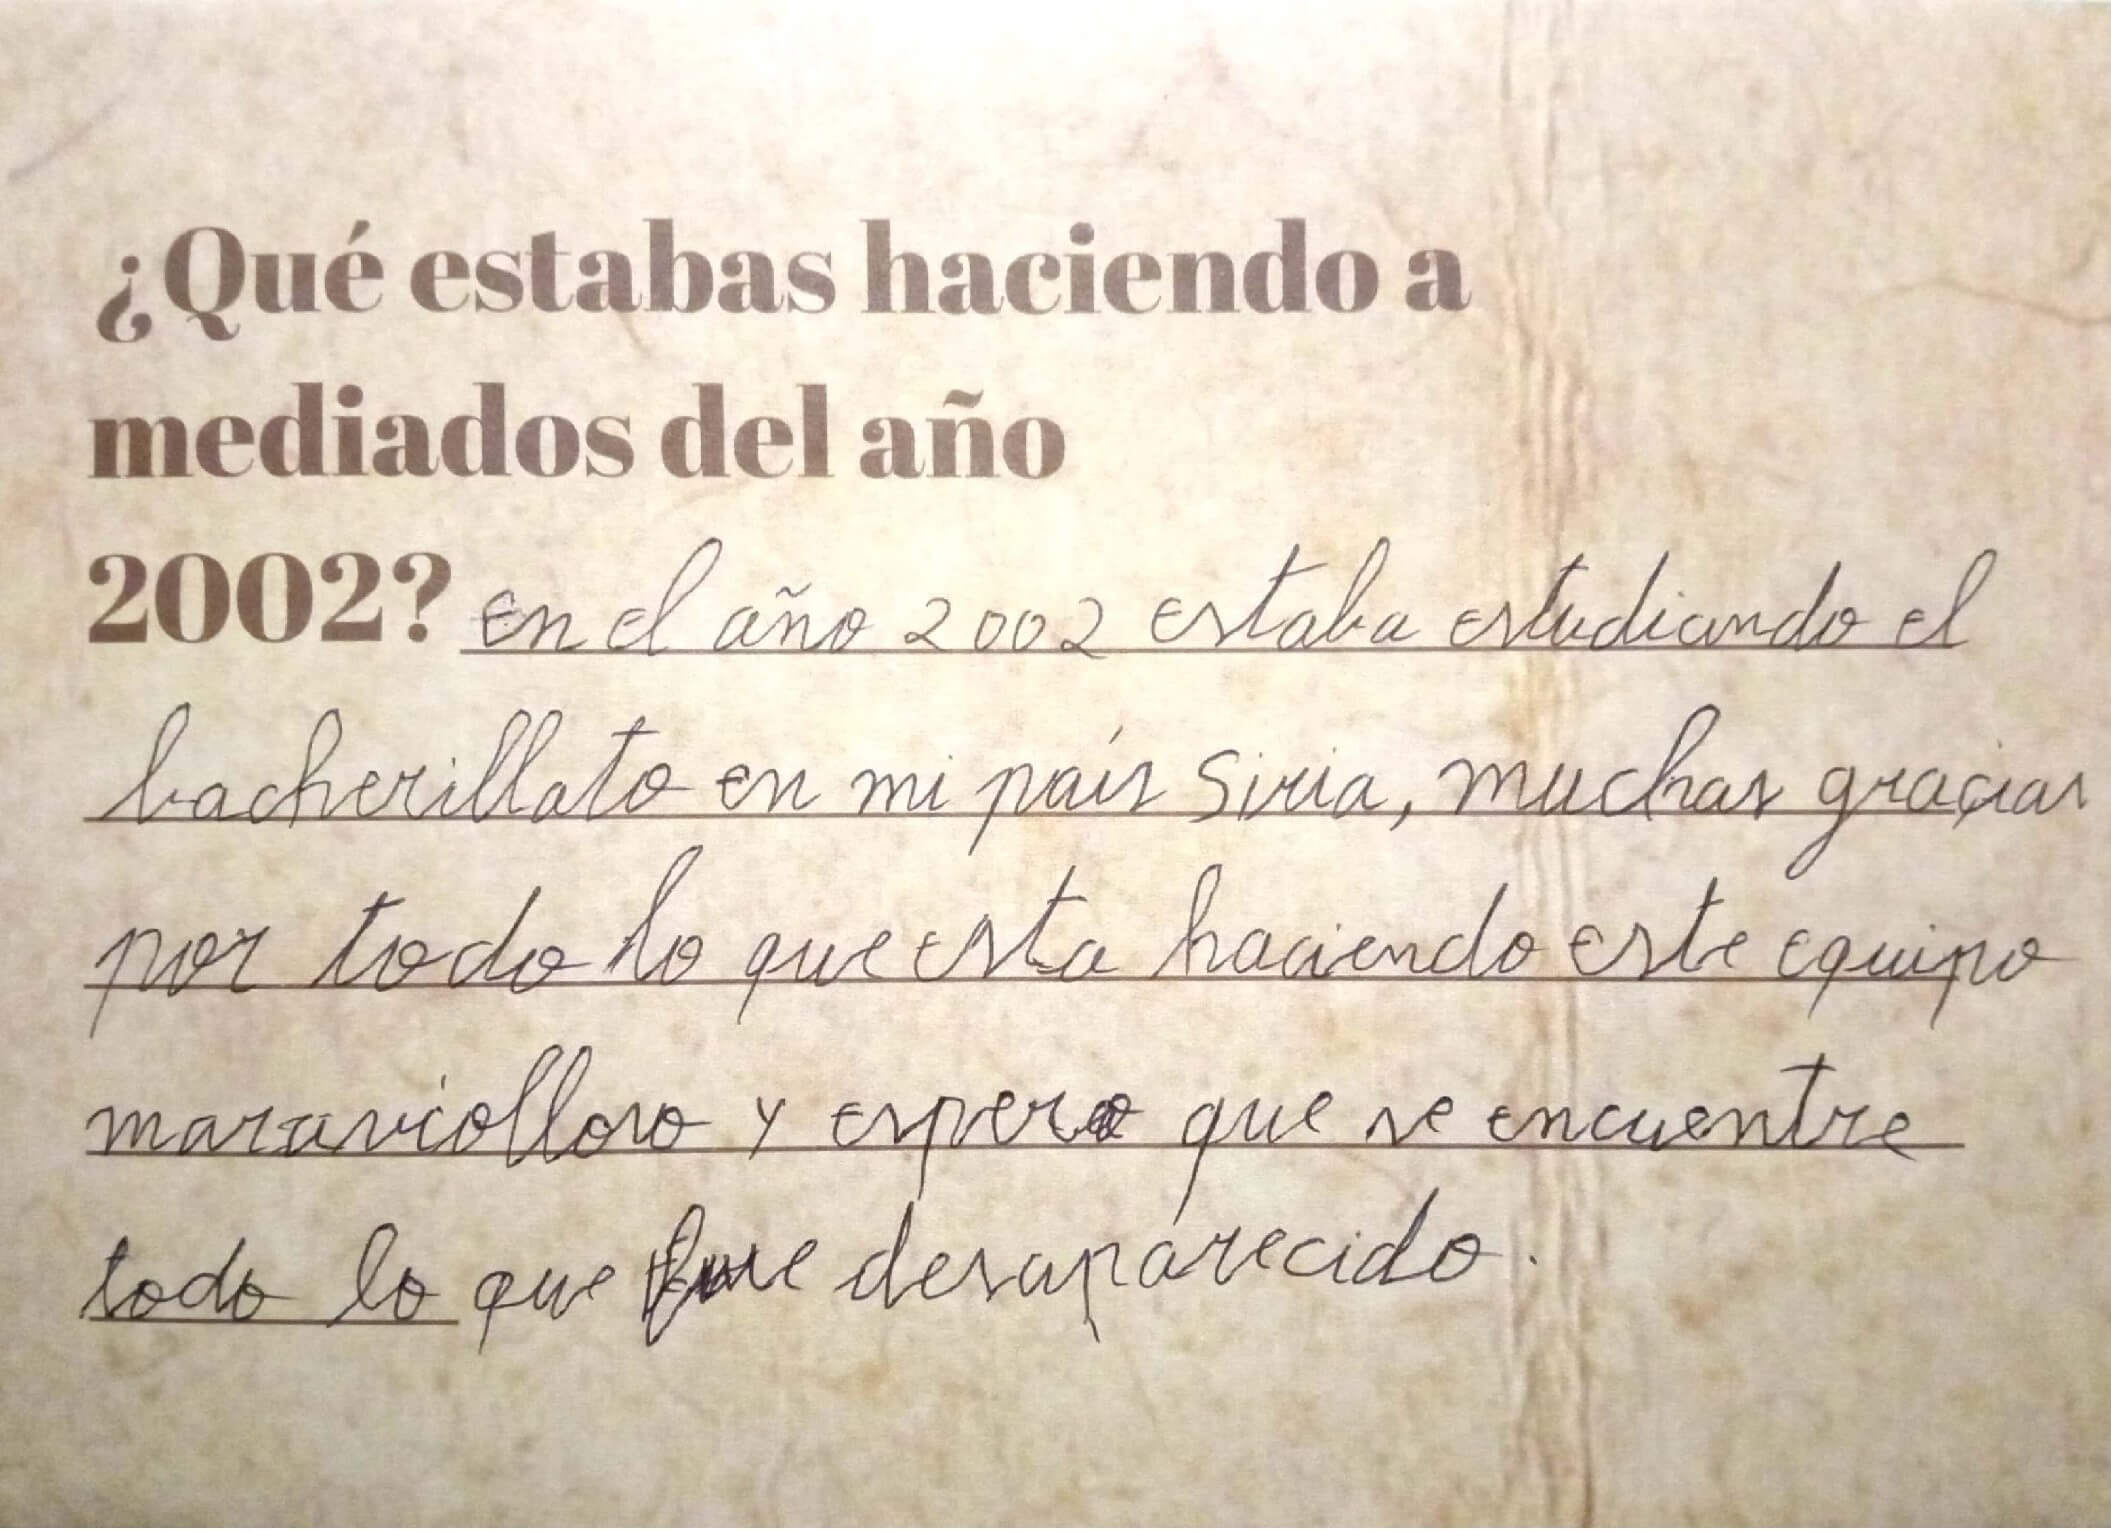 ¿Qué estabas haciendo a
mediados del año
2002? en el año 2002 estaba estudiando el
bacherillato en mi país Siria, muchas gracias
por todo lo que esta haciendo este equipo
maravicolloso y espero que se encuentre
todo lo que fue desaparecido.